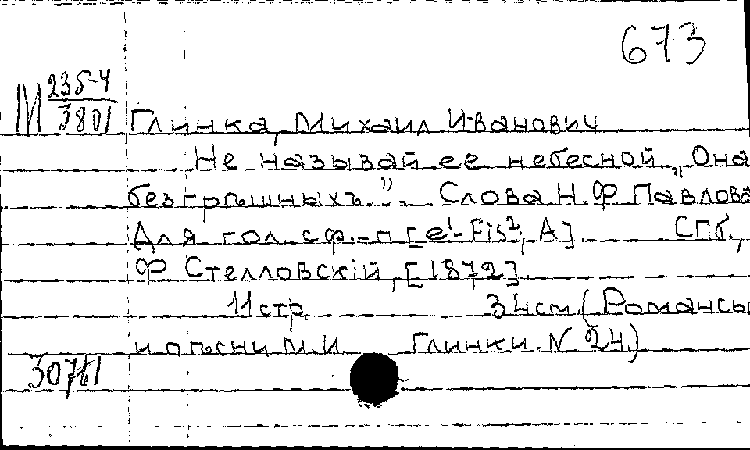 673
М 235-4
3801
Глинка, Михаил Иванович
Не называй ее небесной „Она
без грѣшныхъ”. Слова Н.Ф Павлова
Для гол. с ф.-п [e¹-Fis², A] СПб,
Ф Стелловскій, [1872].
11 стр. 34см (Романсы
и пѣсни М.И Глинки. N 24)